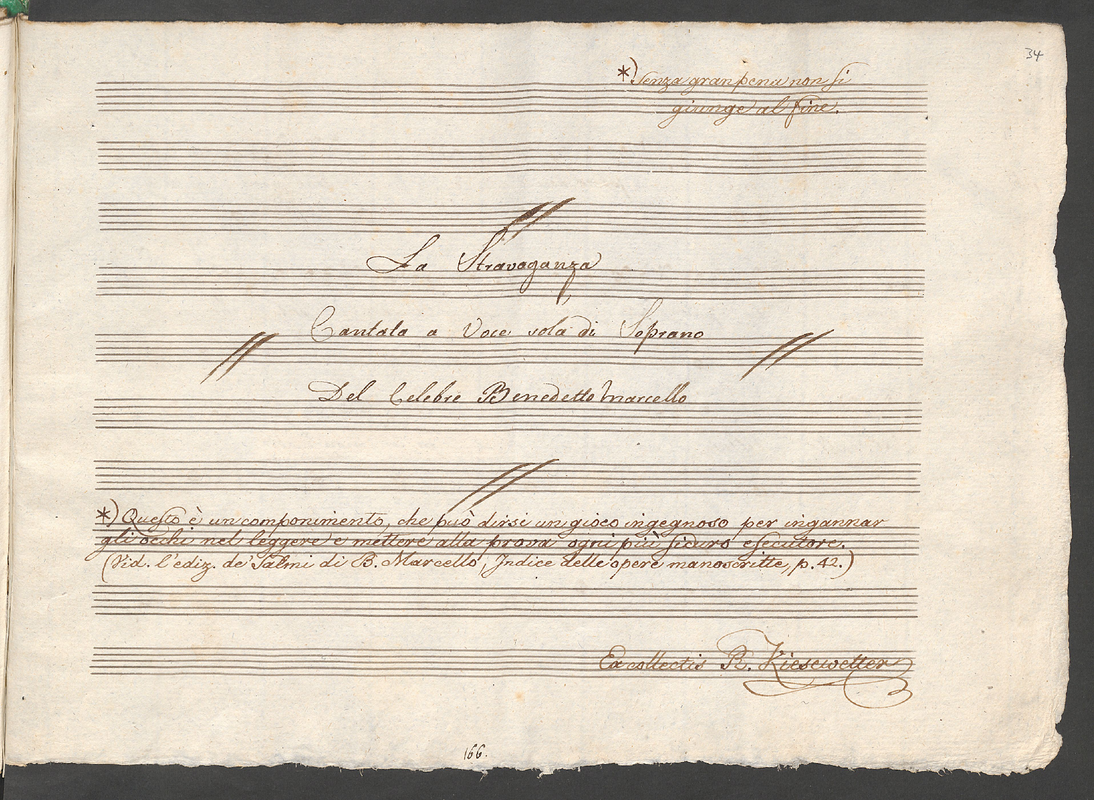 34
*) Senza gran pena non si
giunge al fine.
La Stravaganza
Cantata a Voce sola di Soprano
Del Celebre Benedetto Marcello
*) Questo è un componimento, che può dirsi un gioco ingegnoso per ingannar
gli occhi nel leggere e mettere alla prova ogni più sicuro esecutore.
(Vid. l'ediz. de' Salmi di B. Marcello, Indice delle opere manoscritte, p. 42.)
Ex collectis R. Kiesewetter
166.